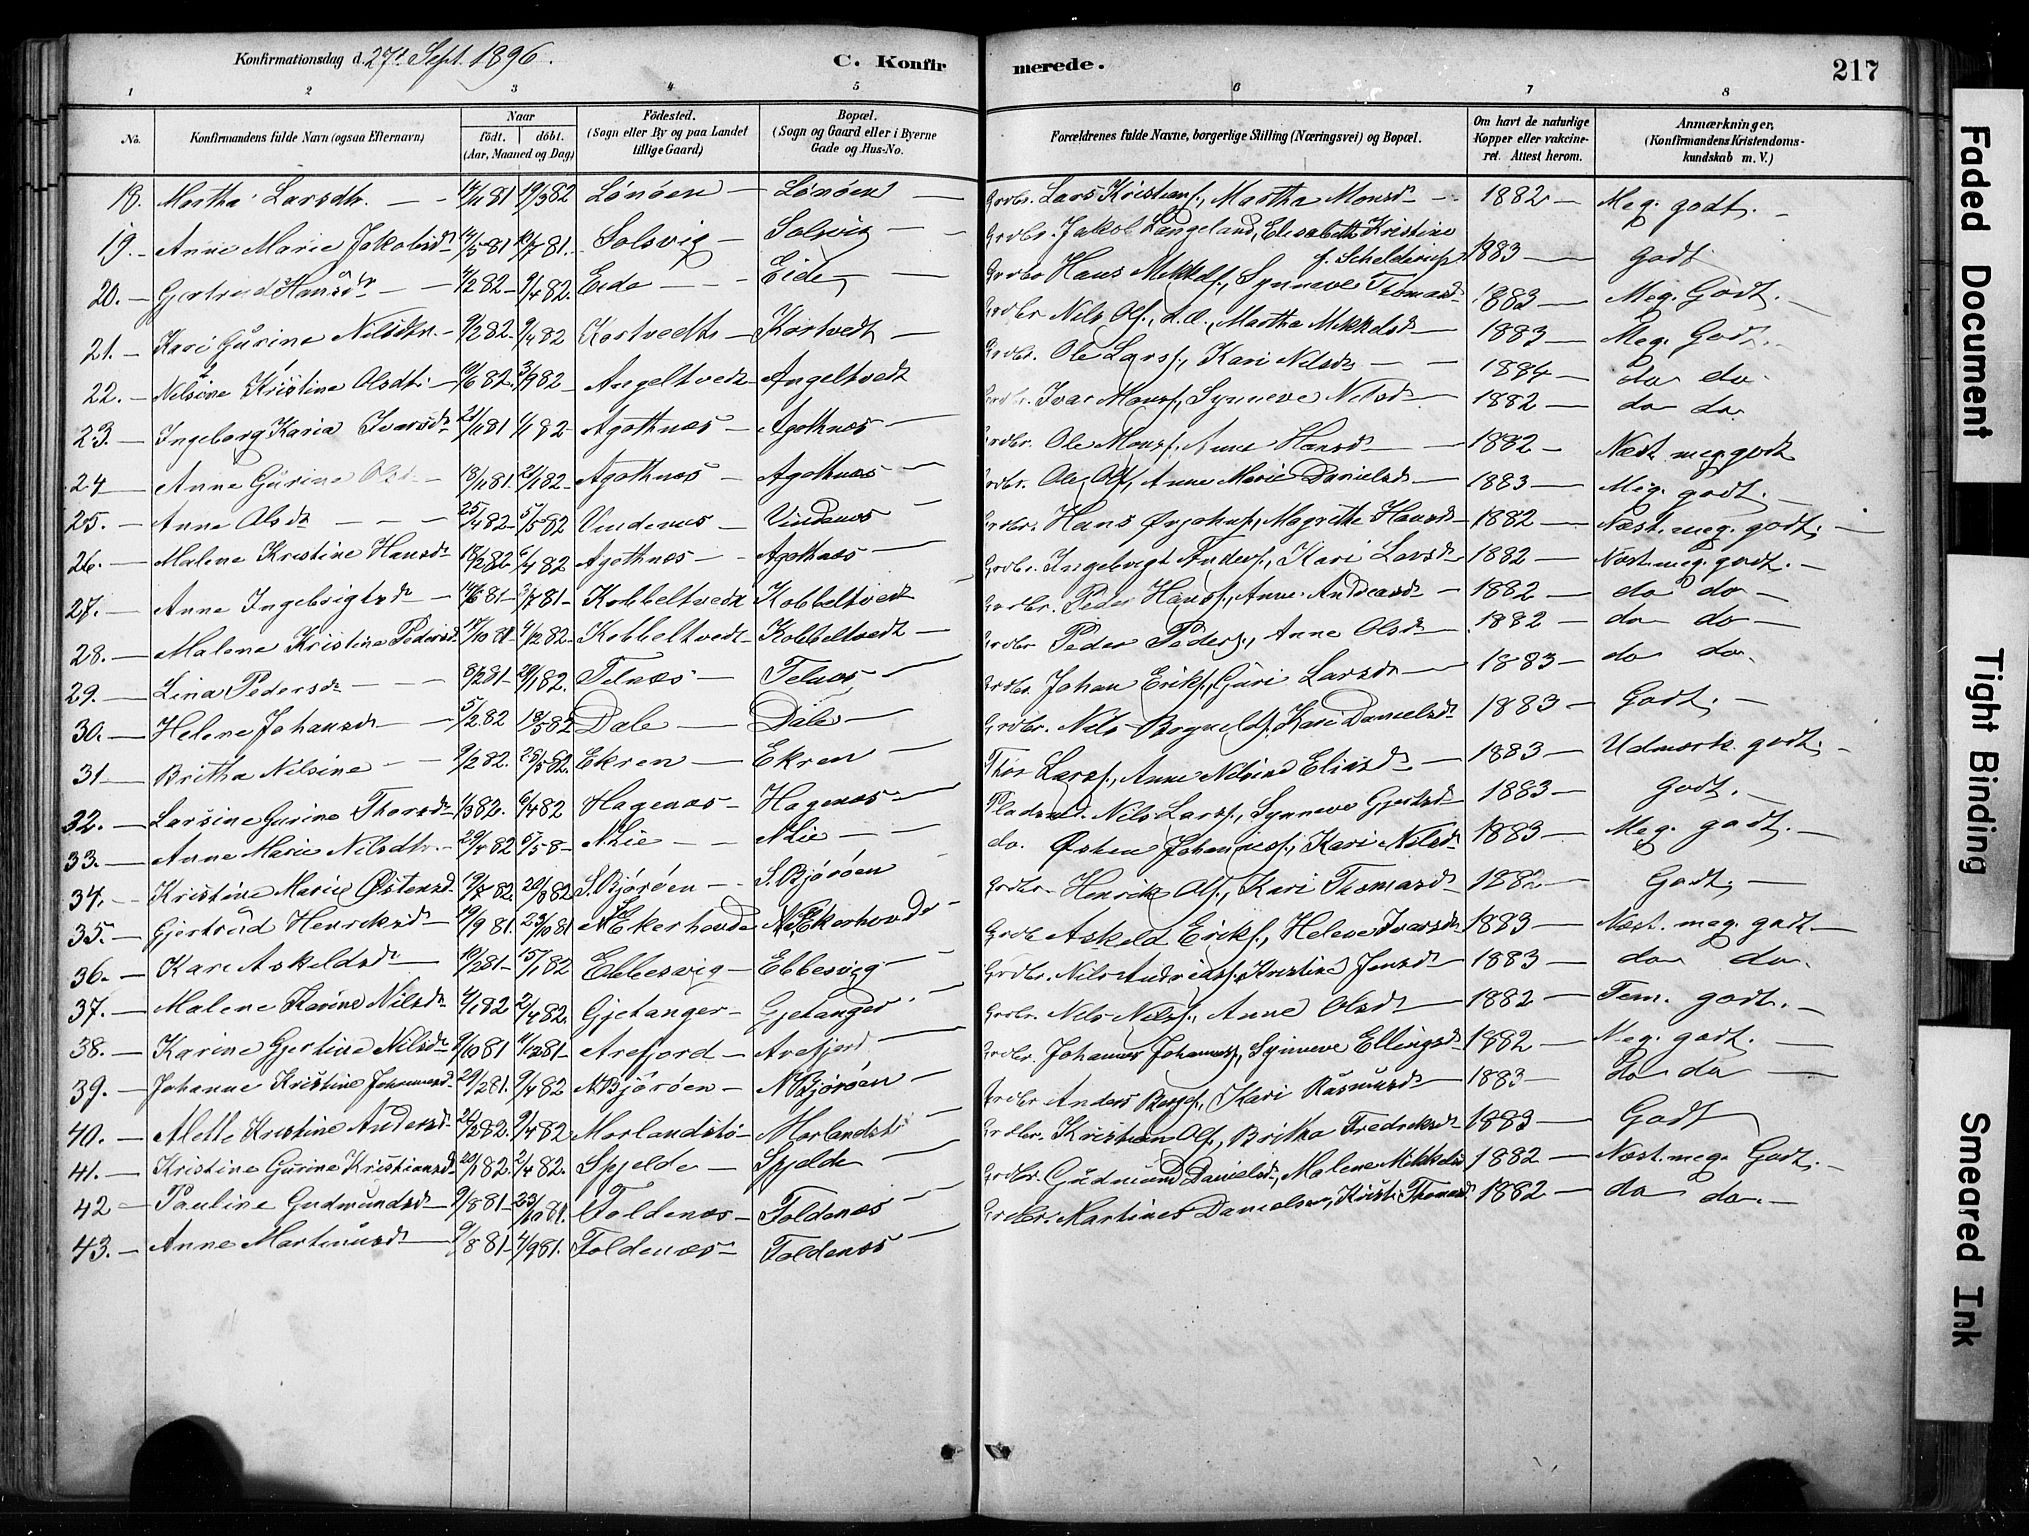 Konfirmationsdag d. 27de Sept. 1896.
C. Konfirmerede.
217
1 2 3 4 5 6 7 8
No.
Konfirmandens fulde Navn (ogsaa Efternavn)
Naar
födt. döbt.
(Aar, Maaned og Dag)
Födested.
(Sogn eller By og paa Landet tillige Gaard)
Bopæl.
(Sogn og Gaard eller i Byerne Gade og Hus-No.
Forældrenes fulde Navne, borgerlige Stilling (Næringsvei) og Bopæl.
Om havt de naturlige Kopper eller vakcineret. Attest herom.
Anmærkninger,
(Konfirmandens Kristendomskundskab m. V.)
18. Martha Larsdtr. 14/11 81 19/3 82 Lönöen Lönöen Grdbr. Lars Kristians., Martha Monsdtr 1882 Meg. godt.
19. Anne Marie Jakobsdtr 81 81. Solsvig Solsvig Grdbr. Jakob Langeland, Elisabeth Kristine f. Schelderup 1883 Godt
20. Gjertrud Hansdtr 4/2 82 9/4 82. Eide Eide Grdbr Hans Mikkels., Synneve Thomasdtr 1883 Meg. Godt.
21. Kari Gurine Nilsdtr. 9/2 82. 9/4 82 Kortvedt Kortvedt Grdbr Nils Ols., Martha Mikkelsdtr 1883 Meg. Godt.
22. Nilsine Kristine Olsdtr. 82. 82 Angeltvedt Angeltvedt Grdbr. Ole Lars., Kari Nilsdtr 1884 do do
23. Ingeborg Karia Ivarsdtr 21/11 81 82 Agothnæs Agothnæs Grdbr. Ivar Mons., Synneve Nilsdtr 1882 do do
24 Anne Gurine Olsd 18/11 81. 82 Agothnæs Agothnæs Grdbr. Ole Mons., Anne Hansdtr 1882 Næst. meg. godt
25. Anne Olsdtr 25/4 82 5/5 82 Vindenes Vindenes Grdbr. Ole Ols., Anne Marie Danielsdtr 1883 Meg. godt.
26. Malene Kristine Hansdtr 18/2 82 6/4 82 Agothnæs Agothnæs Grdbr. Hans Magrethe Hansdtr 1882 Næst. meg. godt.
27. Anne Ingebrigtsdtr 14/6 81 3/7 81 Kobbeltvedt Kobbeltvedt Grdbr. Ingebrigt Anders., Kari Larsdtr 1882 Næst. meg. godt.
28. Malene Kristine Pedersdtr 81 82 Kobbeltvedt Kobbeltvedt Grdbr. Peder Hans., Anne Andreasdtr 1882 do do
29. Lina Pedersdtr 81 82. Telnæs Telnæs Grdbr Peder Peders., Anne Olsdtr 1882 do do
30. Helene Johansdtr 5/2 82 18/5 82 Dale Dale Grdbr. Johan Eriks., Guri Larsdtr 1883 do do.
31 Britha Nilsine 9/2 82. 25/5 82. Ekren Ekren Grdbr. Nils Kari Danielsdtr 1883 Godt.
32. Larsine Gurine Thorsdtr 1/3 82. 6/4 82 Hagenæs Hagenæs Thor Lars., Anne Nilsine Eliasdtr 1883 Udmærk. godt.
33. Anne Marie Nilsdtr. 29/4 82 5/5 8 Lie Lie Pladsmd. Nils Lars., Synneve Gjertsdtr 1883 Godt.
34. Kristine Marie Østensd 82. 20/8 82 S. Björöen S. Björöen do. Østen Johanness., Kari Nilsdtr 1883 Meg. godt.
35. Gjertrud Henriksdtr 19/9 81. 23/10 81 Ekerhovde Ekerhovde Grdbr. Henrik Ols., Kari Thomasdtr 1882 Godt
36. Kari Askeldsdtr 19/12 81 15/1 82 Ebbesvig Ebbesvig Grdbr Askeld Eriks., Helene Ivarsdtr 1883 Næst. meg. godt.
37. Malene Karine Nilsdtr 4/1 82 2/4 82. Gjetanger Gjetanger Grdbr. Nils Andreass., Kristine Jensdtr 1883 do do.
38. Karine Gjertine Nilsdtr 9/10 81 11/12 81 Arefjord Arefjord Grdbr. Nils Nils., Anne Olsdtr 1882 Tem. godt.
39. Johanne Kristine Johannesd 29/12 81. 9/4 82 N. Björöen N. Björöen Grdbr. Johannes Johanness., Synneve Ellingsdtr 1882 Meg. godt.
40. Alette Kristine Andersdtr 82. 9/4 82 Morlandstö Morlandstö Grdbr Anders Kari Rasmusdtr 1883 do do
41. Kristine Gurine Kristiansdtr 20/1 82. 2/4 82. Spjelde Spjelde Grdbr. Kristian Ols., Britha Fredriksdtr 1883 Godt
42 Pauline Gudmundsd 9/8 81 23/10 81. Foldenæs Foldenæs Grdbr. Gudmund Daniels., Malene Mikkelsdtr 1882 Næst. meg. Godt.
43. Anne Martinusdtr 9/8 81 4/9 81. Foldenæs Foldenæs Grdbr. Martinus Danielsen, Kristi Thomasd 1882 do do.
Faded Document
Tight Binding
Smeared Ink